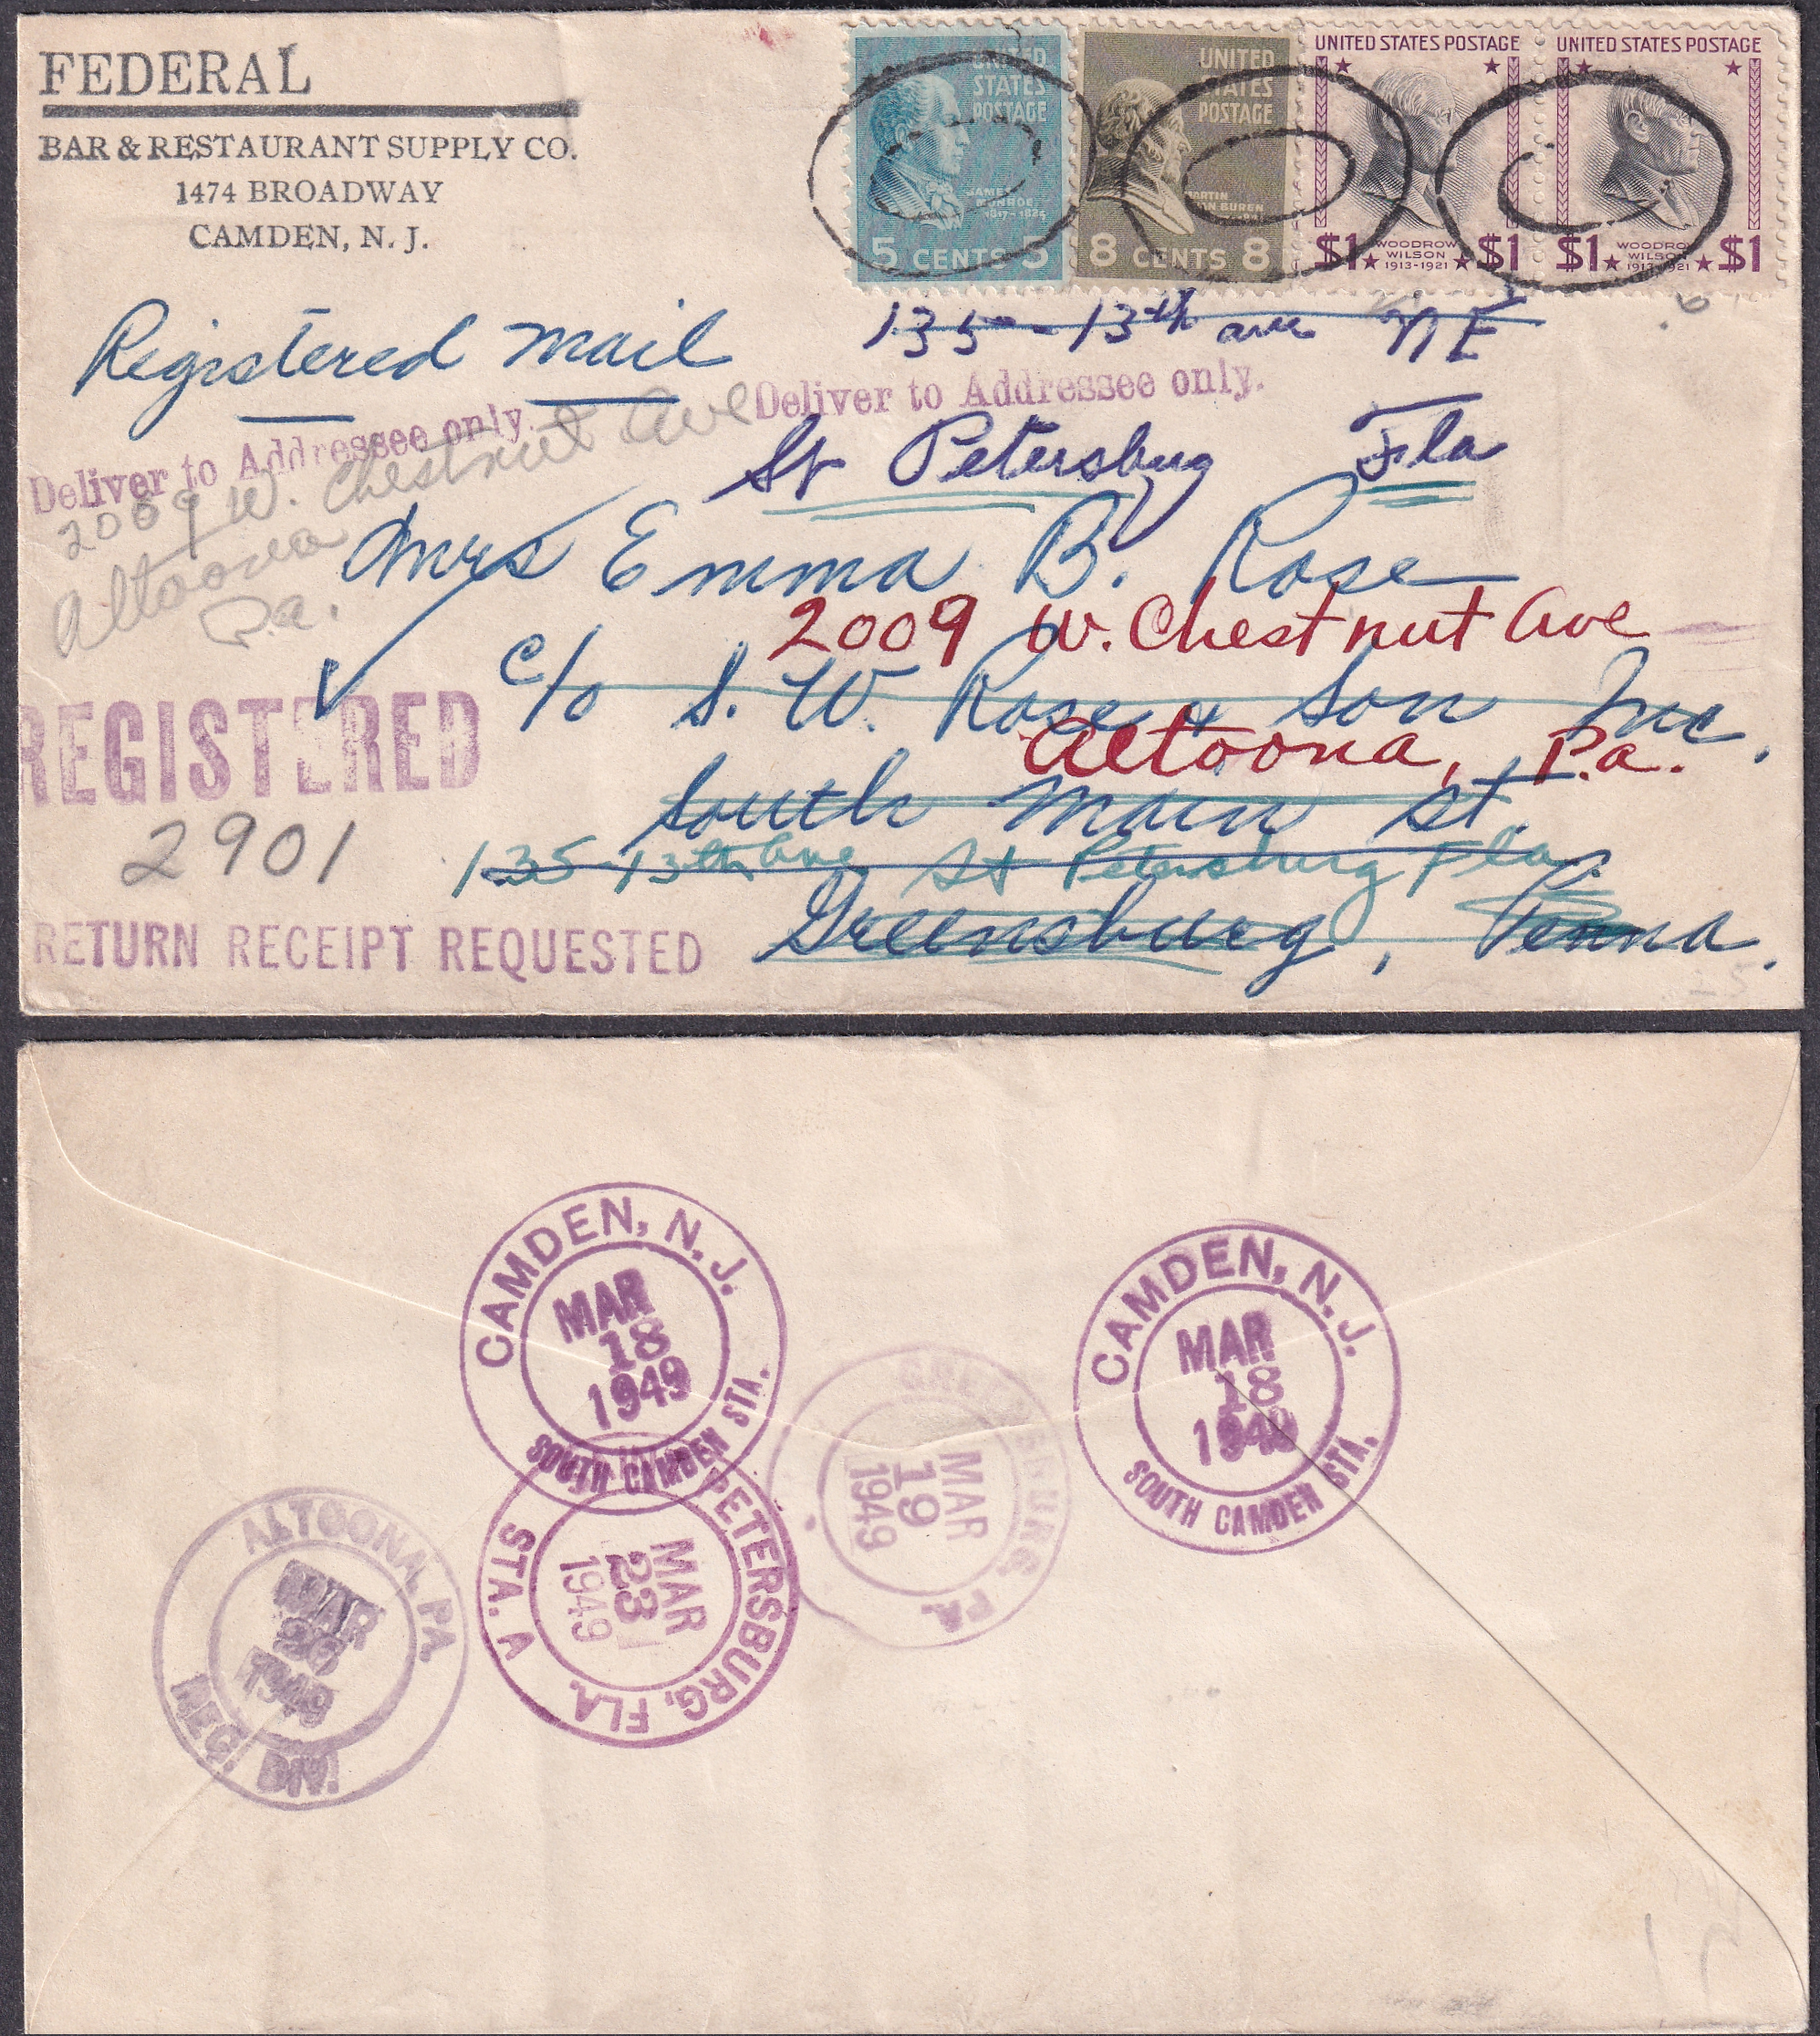 FEDERAL
BAR & RESTAURANT SUPPLY CO.
1474 BROADWAY
CAMDEN, N. J.
UNITED STATES POSTAGE
JAMES MONROE
1817-1825
5 CENTS 5
UNITED STATES POSTAGE
MARTIN VAN BUREN
8 CENTS 8
UNITED STATES POSTAGE
$1 WOODROW WILSON 1913-1921 $1
UNITED STATES POSTAGE
$1 WOODROW WILSON 1913-1921 $1
Registered Mail
135 - 13th ave NE
St Petersburg Fla
Deliver to Addressee only.
Deliver to Addressee only.
2009 W. Chestnut Ave
Altoona
Pa.
Mrs Emma B. Rose
2009 W. Chestnut Ave
c/o S. W. Rose & Son Inc.
Altoona, Pa.
South Main St.
135-13th ave St Petersburg Fla
Greensburg, Penna.
REGISTERED
2901
RETURN RECEIPT REQUESTED
CAMDEN, N. J.
MAR
18
1949
SOUTH CAMDEN STA.
CAMDEN, N. J.
MAR
18
1949
SOUTH CAMDEN STA.
GREENSBURG, PA.
MAR
19
1949
PETERSBURG, FLA.
MAR
23
1949
STA. A
ALTOONA, PA.
MAR
26
1949
REG. DIV.